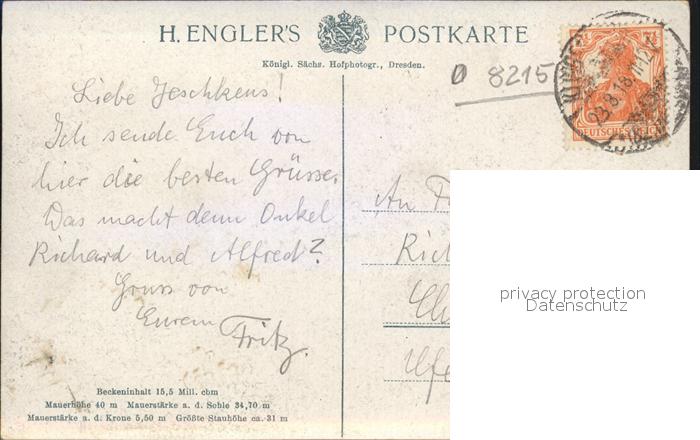 H. ENGLER'S POSTKARTE
Königl. Sächs. Hofphotogr., Dresden.
0 8215
7½
DEUTSCHES REICH
23.8.18.
Liebe Jeschkens!
Ich sende Euch von
hier die besten Grüsse.
Was macht denn Onkel
Richard und Alfred?
Gruss von
Eurem Fritz.
An
Ric
Beckeninhalt 15,5 Mill. cbm
Mauerhöhe 40 m Mauerstärke a. d. Sohle 34,70 m
Mauerstärke a. d. Krone 5,50 m Größte Stauhöhe ca. 31 m
privacy protection
Datenschutz